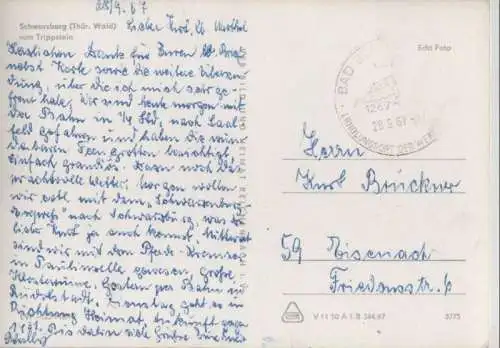 28/9. 67
Schwarzburg (Thür. Wald)
vom Trippstein
Lieber Kurt, lb.
Herzlichen Dank für Euren lb. Brief
nebst Karte sowie die weitere Übersen-
dung, über die ich mich sehr ge-
freut habe. Wir sind heute morgen mit
der Bahn in 1/2 Std. nach Saal-
feld gefahren und haben die wun-
derbaren Feengrotten besichtigt,
einfach grandios. Haben noch
prachtvolles Wetter, morgen wollen
wir evtl. mit dem „Schwarzburg-
express" nach Schwarzburg, was Du
lieber Kurt ja auch kennst. Mittwoch
sind wir mit dem Pferde-Kremser
in Paulinzella gewesen, Große
Klosterruine. Gestern per Bahn in
Rudolstadt. Dienstag geht es in
Richtung Heimat,
Bis dahin viele Grüße
Echt Foto
BAD
28.9.67
Herrn
Kurt Brückner
59 Eisenach
Friedensstr. 6
V 11 50 A 1 B 344/67
5773